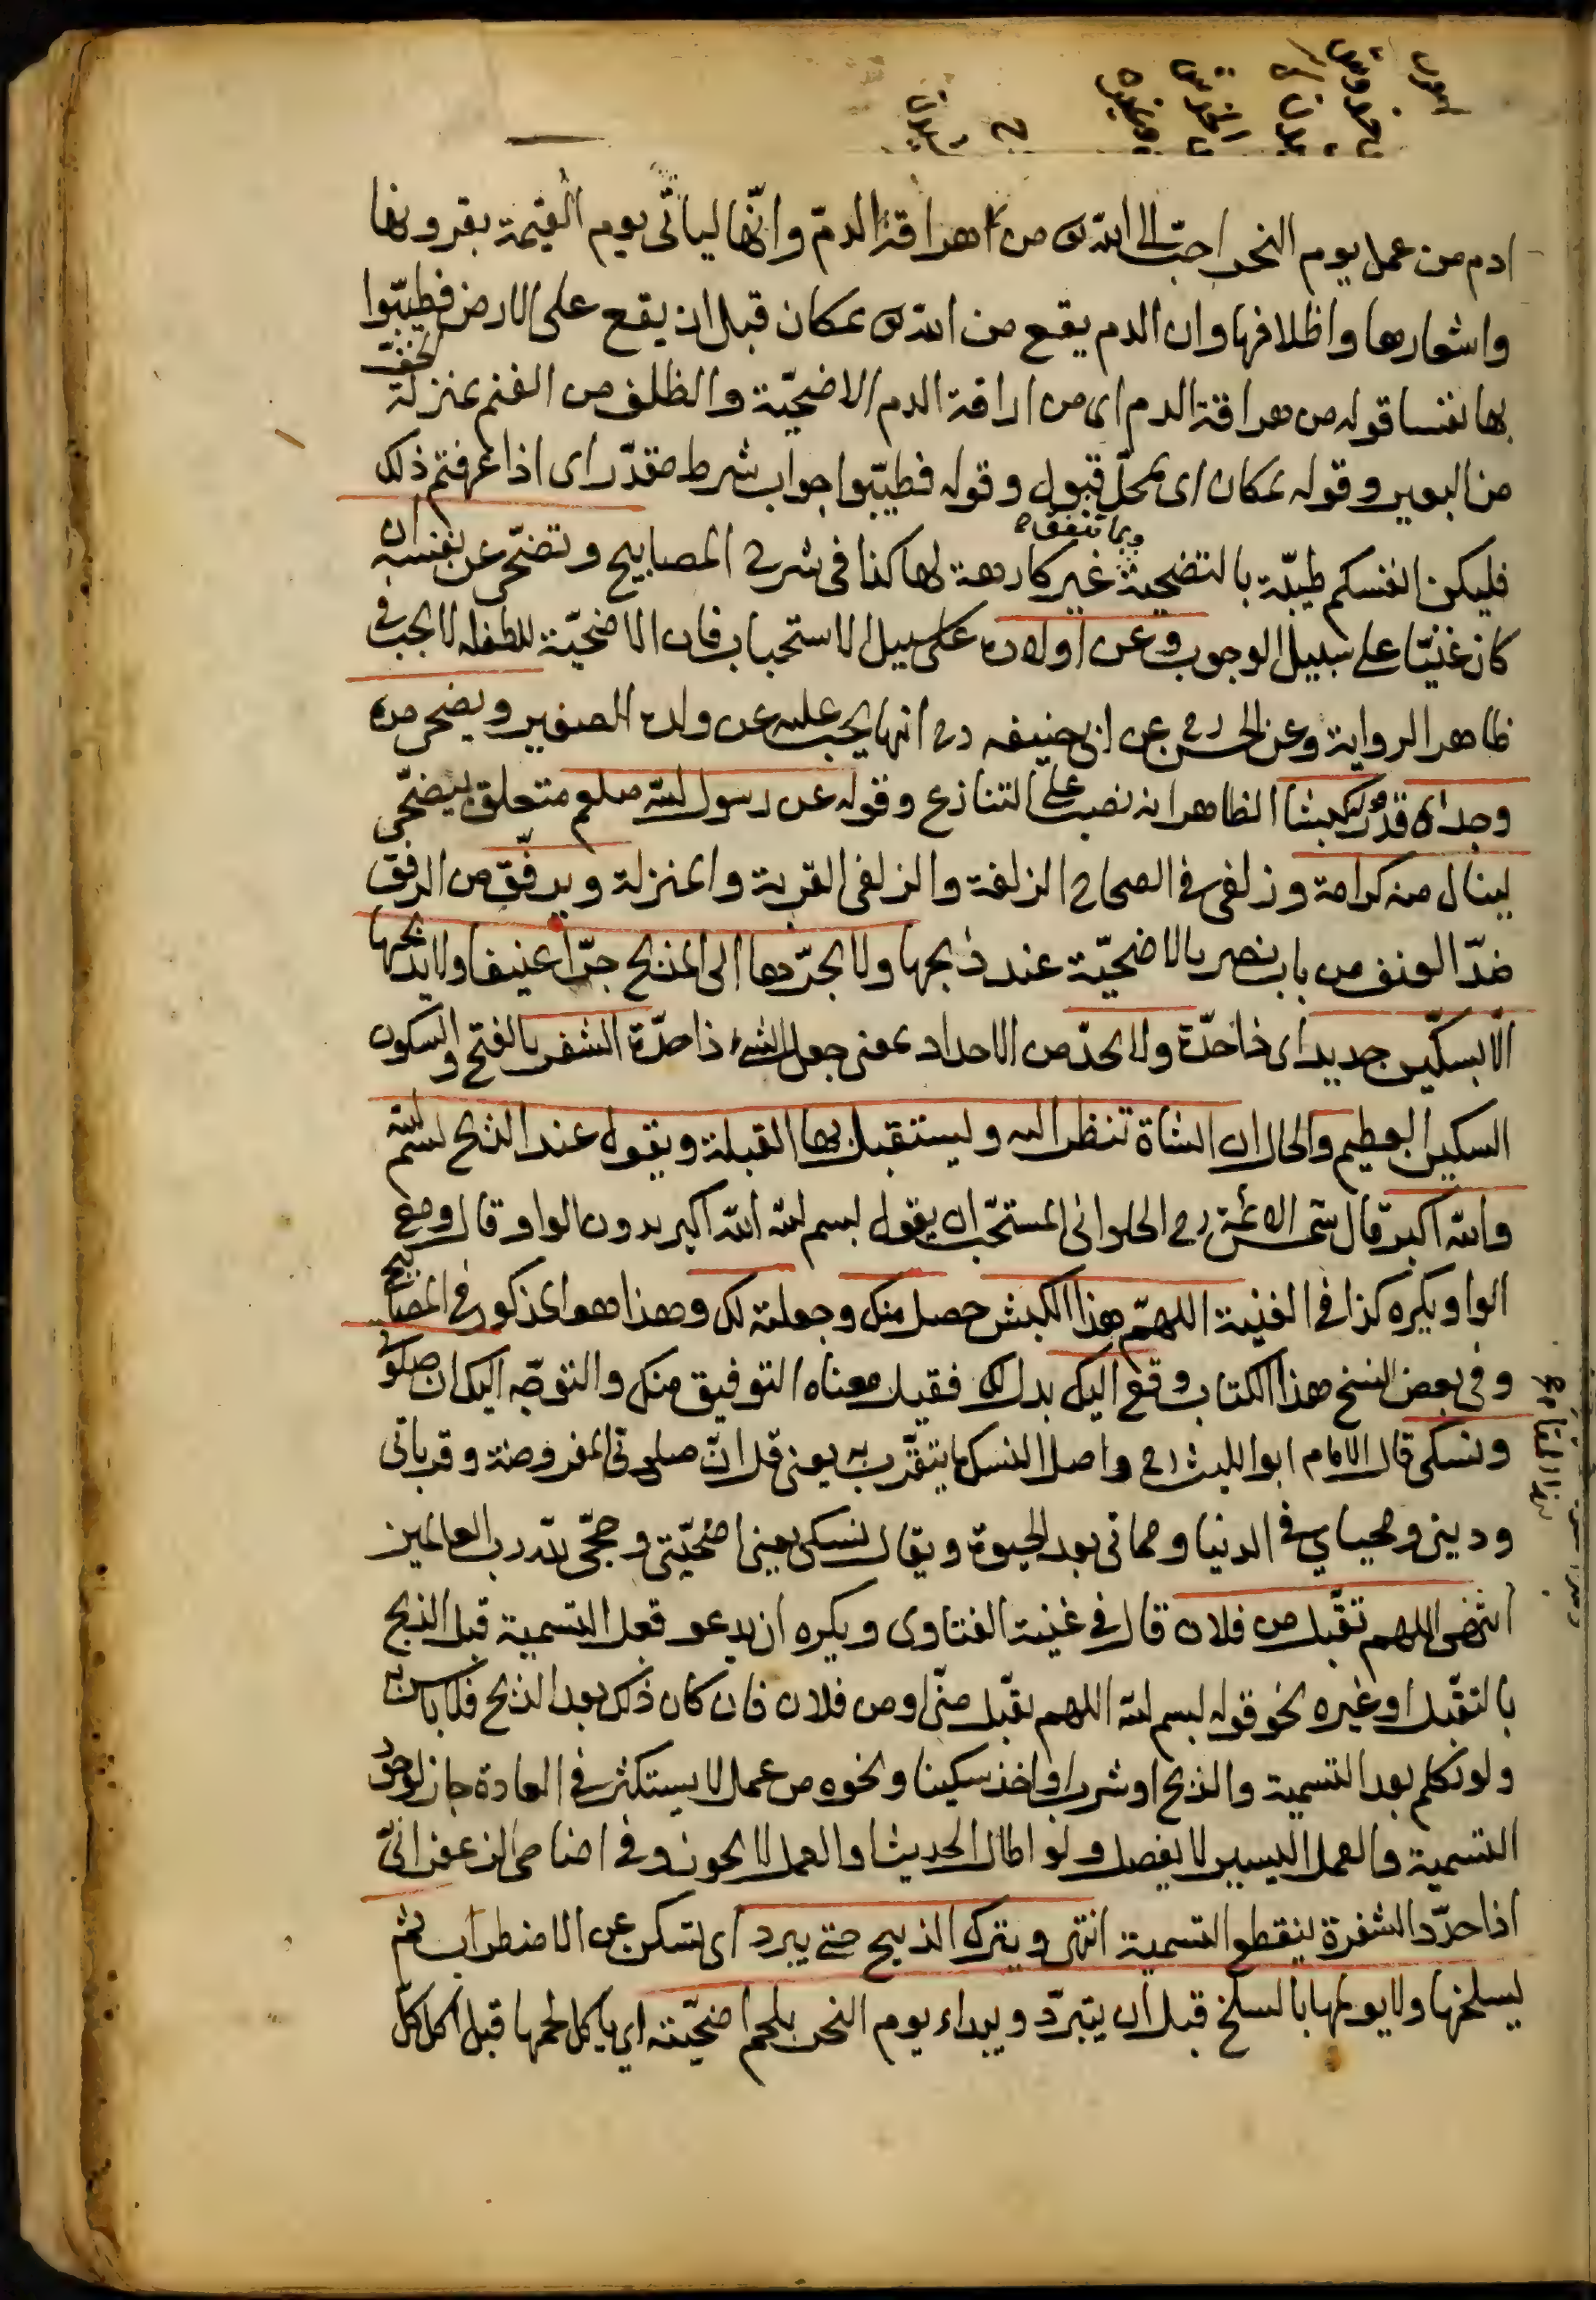 ادم من عمل يوم النحر احبّ الى الله تع من اهراقة الدمّ وانّها ليأتى يوم القيمة بقرونها
واشعارها واظلافها وان الدم يقع من الله تع بمكان قبل ان يقع على الارض فطيّبوا
بها نفسا قوله من هراقة الدم اى من اراقة الدم الاضحيّة والظلف من الغنم بمنزلة الخفّ
من البعير وقوله بمكان اى بمحلّ قبول وقوله فطيّبوا جواب شرط مقدّر اى اذا عرفتم ذلك
فليكن انفسكم طيبّة بالتضحية غير كارهة لها كذا فى شرح المصابيح وتضحّى عن نفسه ان
كان غنيّا على سبيل الوجوب وعن اولاده على سبيل الاستحباب فان الاضحيّة للطفل لا يجب فى
ظاهر الرواية وعن الحسن رح عن ابى حنيفه رح انها يجب عليه عن ولده الصغير ويضحى من
وجداه قدر كبشا الظاهر انه نصب على التنازع وقوله عن رسول الله صلعم متعلق ليضحّى
لينال منه كرامة وزلفى فى الصحاح الزلفة والزلفى القربة والمنزلة ويرفّق من الرفق
ضدّ العنف من باب نصر بالاضحيّة عند ذبحها ولا يجرّدها الى المذبح جرّا عنيفا ولا يذبحها
الّا بسكّين حديد اى ذا حدّة ولا يحدّ من الاحداد بمعنى جعل الشئ ذا حدّة الشفر بالفتح والسكون
السكين العظيم والحال ان الشاة تنظر اليه وليستقبل بها القبلة ويقول عند الذبح بسم الله
والله اكبر قال شمس الائمة رح الحلوانى المستحّب ان يقول بسم الله الله اكبر بدون الواو قال ومع
الواو يكره كذا فى الغنية اللهمّ هذا الكبش حصل منك وجعلته لك وهذا هو المذكور فى المصابيح
وفى بعض النسخ هذا الكتاب وقع اليك بدل لك فقيل معناه التوفيق منك والتوجّه اليك ان صلوتى
ونسكى قال الامام ابو الليث رح واصل النسك ما يتقرّب به يعنى قل انّ صلوتى المفروضة وقربانى
ودينى ومحياي فى الدنيا ومماتى بعد الحيوة ويقال نسكى يعنى اضحيّتى وحجّى لله رب العالمين
انتهى اللهم تقبّل من فلان قال فى غنية الفتاوى ويكره ان يدعو فعل التسمية قبل الذبح
بالتقبّل او غيره نحو قوله بسم الله اللهم تقبّل منّى او من فلان فان كان ذلك بعد الذبح فلا باس به
ولو تكلم بعد التسمية والذبح او شرب او اخذ سكينا ونحوه من عمل لا يستكثر فى العادة جاز لوجود
التسمية والعمل اليسير لا يفصل ولو اطال الحديث او العمل لا يجوز وفى اضاحى الزعفرانىّ
اذا حدّد الشفرة ينقطع التسمية انتهى ويترك الذبيح حتى يبرد اى تسكن عن الاضطراب ثم
يسلخها ولا يولمها بالسلخ قبل ان يتبرّد ويبداء يوم النحر بلحم اضحيّته اى ياكل لحمها قبل اكل كلّ